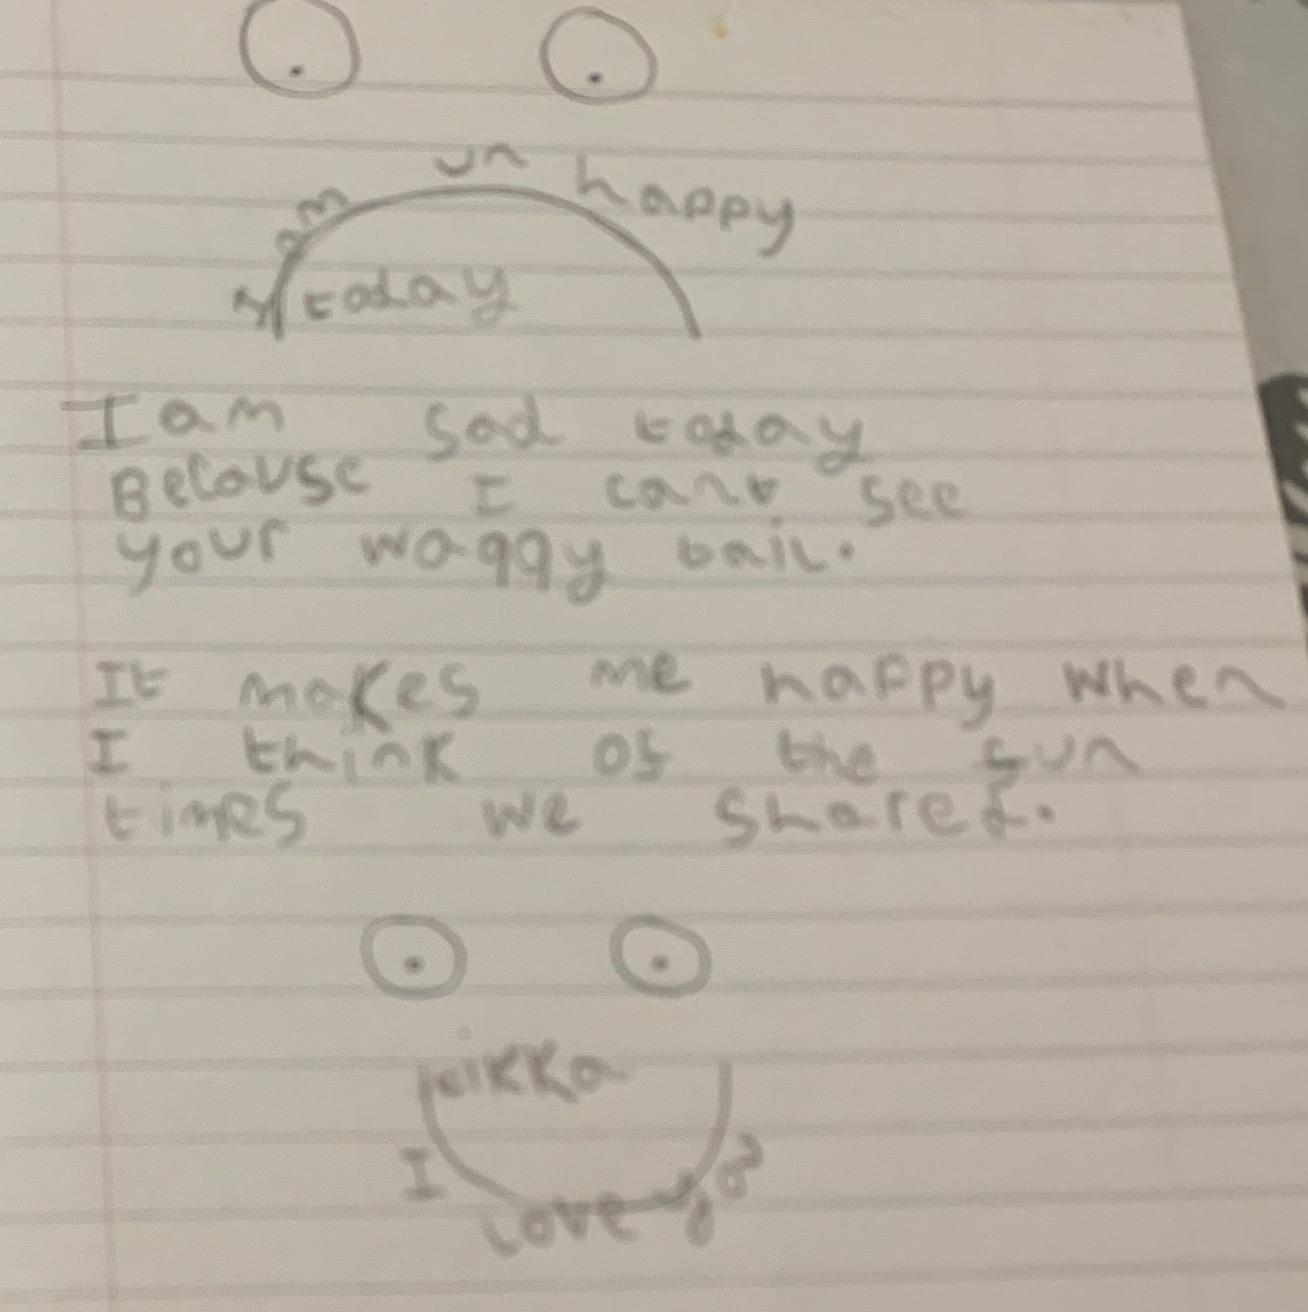 I am un happy
today
I am sad today
Because I cant see
your waggy tail.
It makes me happy when
I think of the fun
times we shared.
kikka
I love you